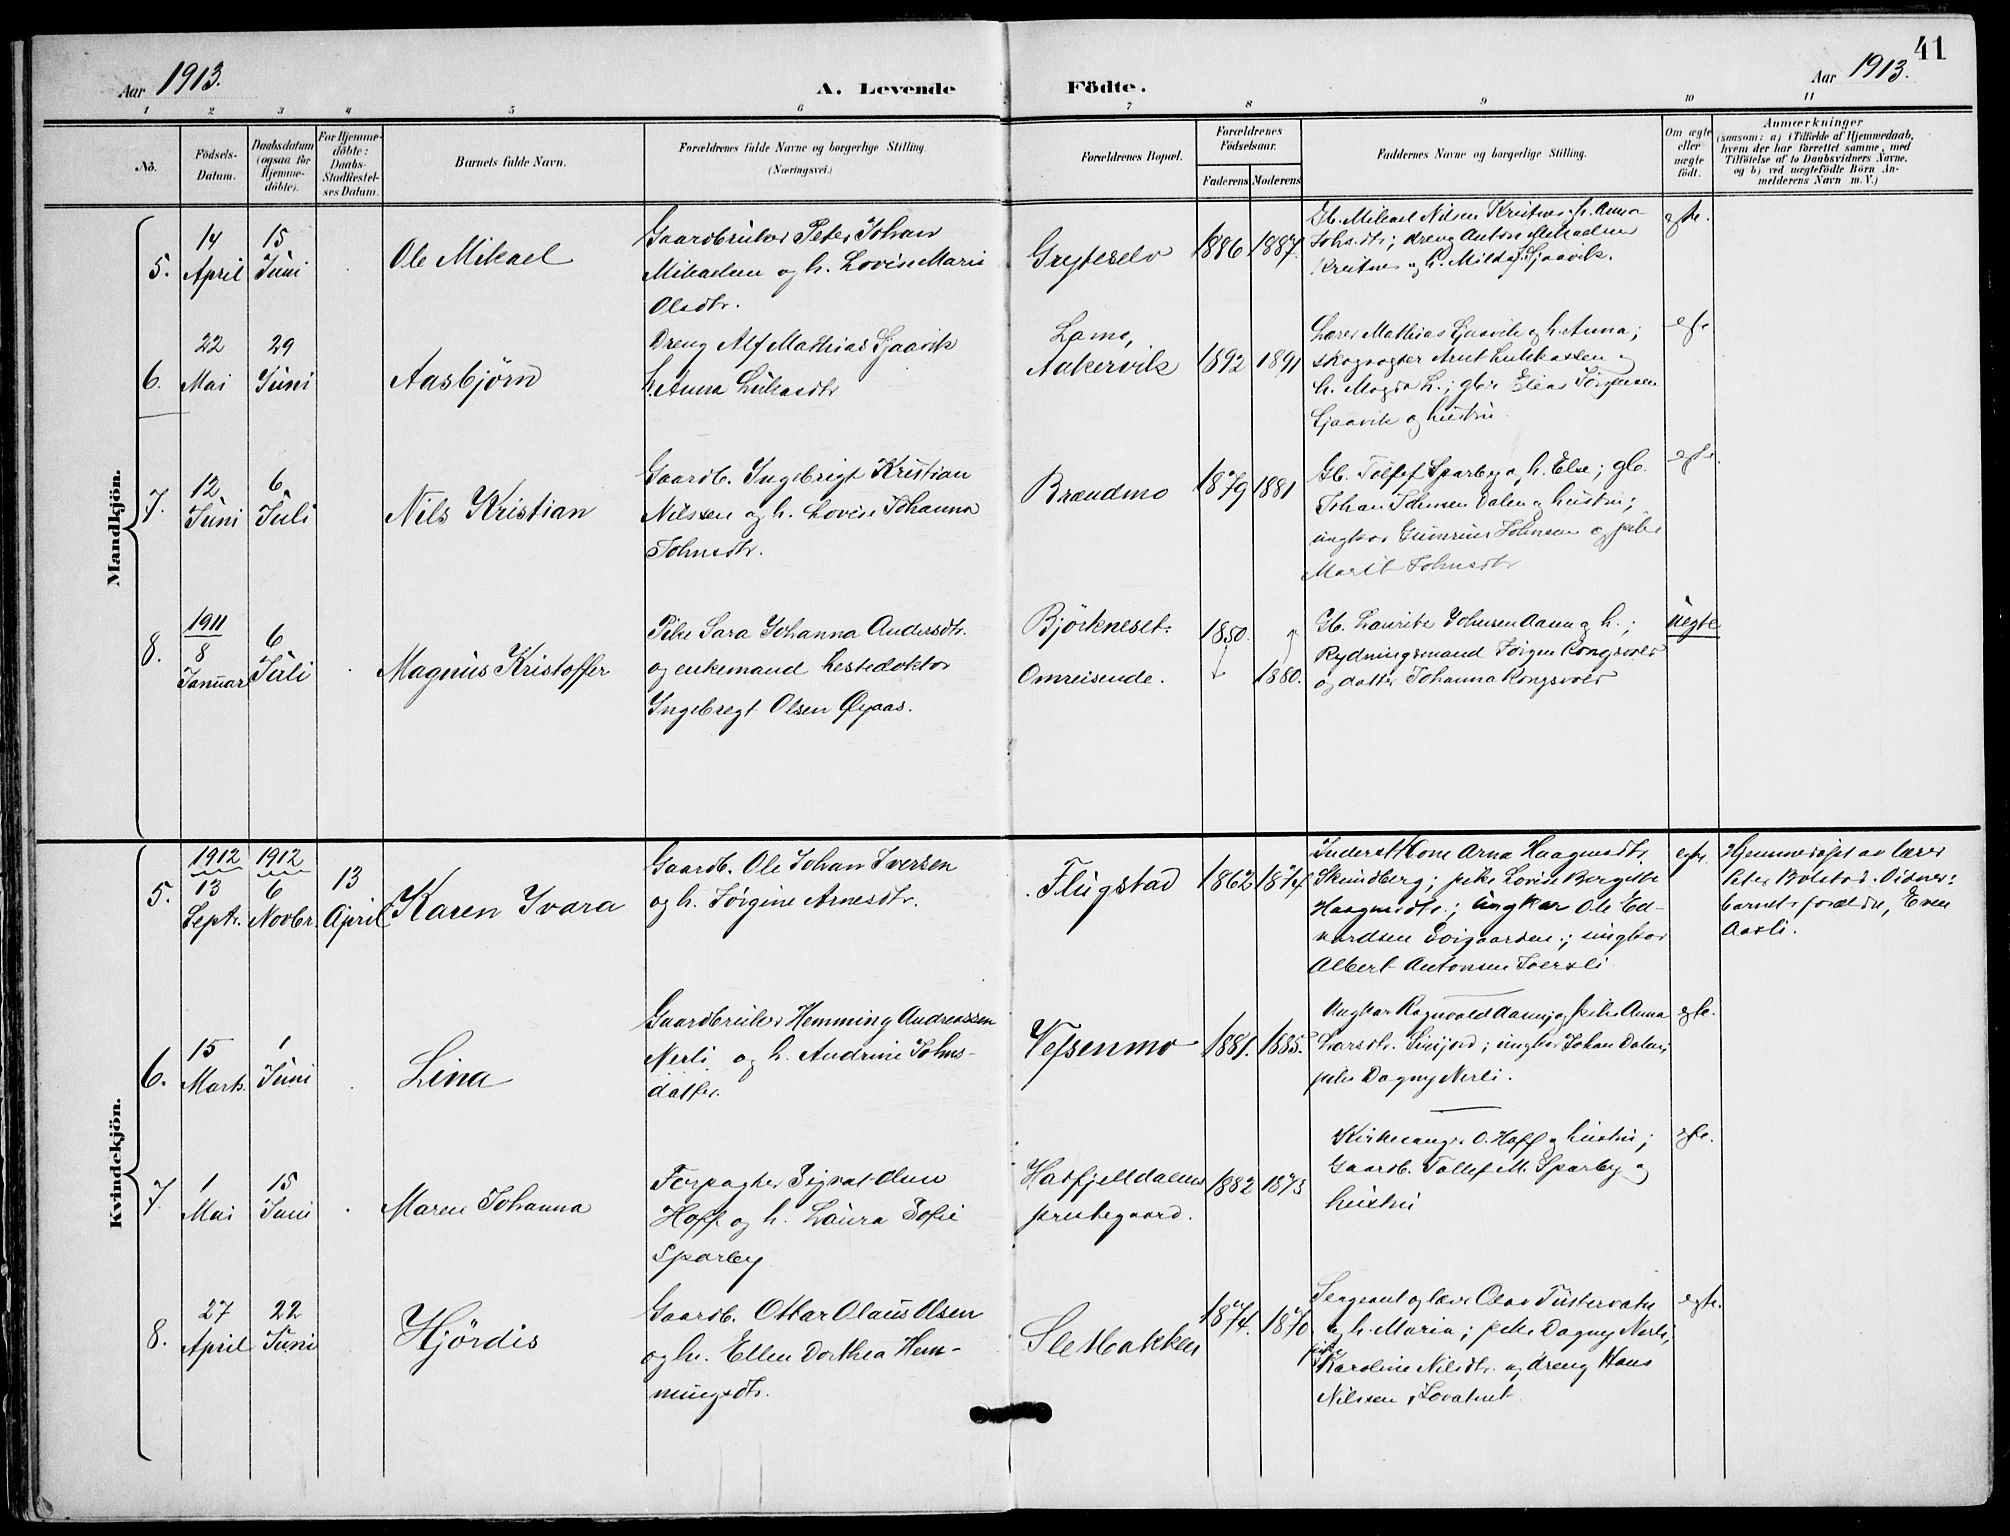 41
Aar 1913.
A. Levende Födte.
Aar 1913.
1 2 3 4 5 6 7 8 9 10 11
No.
Födsels-Datum.
Daabsdatum (ogsaa för Hjemmedöbte).
For Hjemmedöbte: Daabs-Stadfæstelses Datum.
Barnets fulde Navn.
Forældrenes fulde Navne og borgerlige Stilling.
(Næringsvei.)
Forældrenes Bopæl.
Forældrenes Födselsaar.
Faderens Moderens
Faddernes Navne og borgerlige Stilling.
Om ægte eller uægte födt.
Anmærkninger
(saasom: a) i Tilfælde af Hjemmedaab,
hvem der har forrettet samme, med
Tilföielse af to Daabsvidners Navne.
og b) ved uægtefödte Börn An-
melderens Navn m. V.)
Mandkjön.
5.
14 April
15 Juni
Ole Mikael
Gaardbruker Peter Johan
Mikaelsen og h. Lovise Marie
Olsdtr.
Gryteselv
1886 1887.
Gb. Mikael Nilsen Kristnes, h. Anna
Johsdtr; dreng Anton Mikaelsen
Kristnes og h. Milda Sjaavik.
egte.
6.
22 Mai
29 Juni
Aasbjørn
Dreng Alf Mathias Sjaavik
h. Anna Lukasdtr
Lamo,
Aakervik
1892 1891
Lærer Mathias Sjaavik og h. Anna;
skogvogter Arnt Lukkassen og
h. Magda L.; gbr Elias Jörgensen
Sjaavik og hustru.
egte
7.
12 Juni
6 Juli
Nils Kristian
Gaardb. Ingebrigt Kristian
Nilssen og h. Lovise Johanna
Johnsdtr.
Brændmo
1879 1881
Gb. Tollef Sparby og h. Else; gb.
Johan Johnsen Dalen og hustru;
ungkar Gunerius Johnsen og pike
Marit Johnsdtr
egte.
8.
1911
8 Januar
6 Juli
Magnus Kristoffer
Pike Sara Johanna Andersdtr.
og enkemand hestedoktor
Ingebregt Olsen Øyaas.
Björkneset.
Omreisende.
1850. 1880.
Gb. Laurits Johnsen Aanu og h.;
Rydningsmand Jörgen Kongsvold
og datter Johanna Kongsvold
uegte
Kvindekjön.
5.
1912
13 Septr.
1912
6 Novbr.
13 April
Karen Ivara
Gaardb. Ole Johan Iversen
og h. Jørgine Arnesdtr.
Flugstad
1862 1874
Inderst Kone Arna Haagensdtr.
Skundberg; pike Lovise Bergitte
Haagensdtr.; ungkar Ole Ed-
vardsen Svigaarden; ungkar
Albert Antonsen
egte.
Hjemmedøpt av lærer
Peter Bolstad. Vidner:
barnets forældre, Even
Aasli.
6.
15 Marts
1 Juni
Lina
Gaardbruker Hemming Andreassen
Nerli og h. Andrine Johns-
datter.
Vefsenmo
1881. 1885.
Ungkar Ragnvald Aanu, pike Anna
Larsdtr. ungkar Johan Dalen;
pike Dagny Nerli.
egte.
7.
1 Mai
15 Juni
Maren Johanna
Forpagter Sigvat Olsen
Hoff og h. Laura Sofie
Sparby
Hatfjelldalens
prestegaard.
1882 1873
Kirkesangr. O. Hoff og hustru;
Gaardb. Tollef M. Sparby og
hustru
egte.
8.
27 April
22 Juni
Hjördis
Gaardb. Ottar Olaus Olsen
og h. Ellen Dorthea Hem-
mingsdtr.
Sletbakken
1874. 1870
Sergeant og lærer Olav Tustervatn
og h. Maria; pike Dagny Nerli,
pike Karoline Nilsdtr. og dreng Hans
Nilssen
egte.